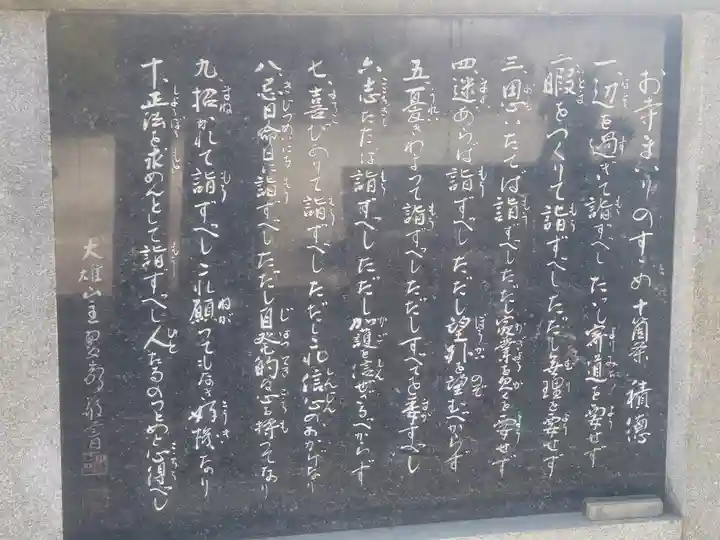 お寺まいりのすすめ十箇条 積徳
一、辺を過ぎて詣ずべし ただし寄道を要せず
二、暇をつくりて詣ずべし ただし無理を要せず
三、思いたてば詣ずべし ただし家業を怠るを要せず
四、迷あらば詣ずべし ただし望外を望むべからず
五、憂きわまって詣ずべし ただしすべてを委すべし
六、志たたば詣ずべし ただし加護を信ぜざるべからず
七、喜びありて詣ずべし ただしこれ信心のおかげなり
八、忌日命日に詣ずべし ただし自発的な心を持ってなり
九、招かれて詣ずべし これ願ってもなき好機なり
十、正法を求めんとして詣ずべし 人たるのつとめと心得べし
大雄山主